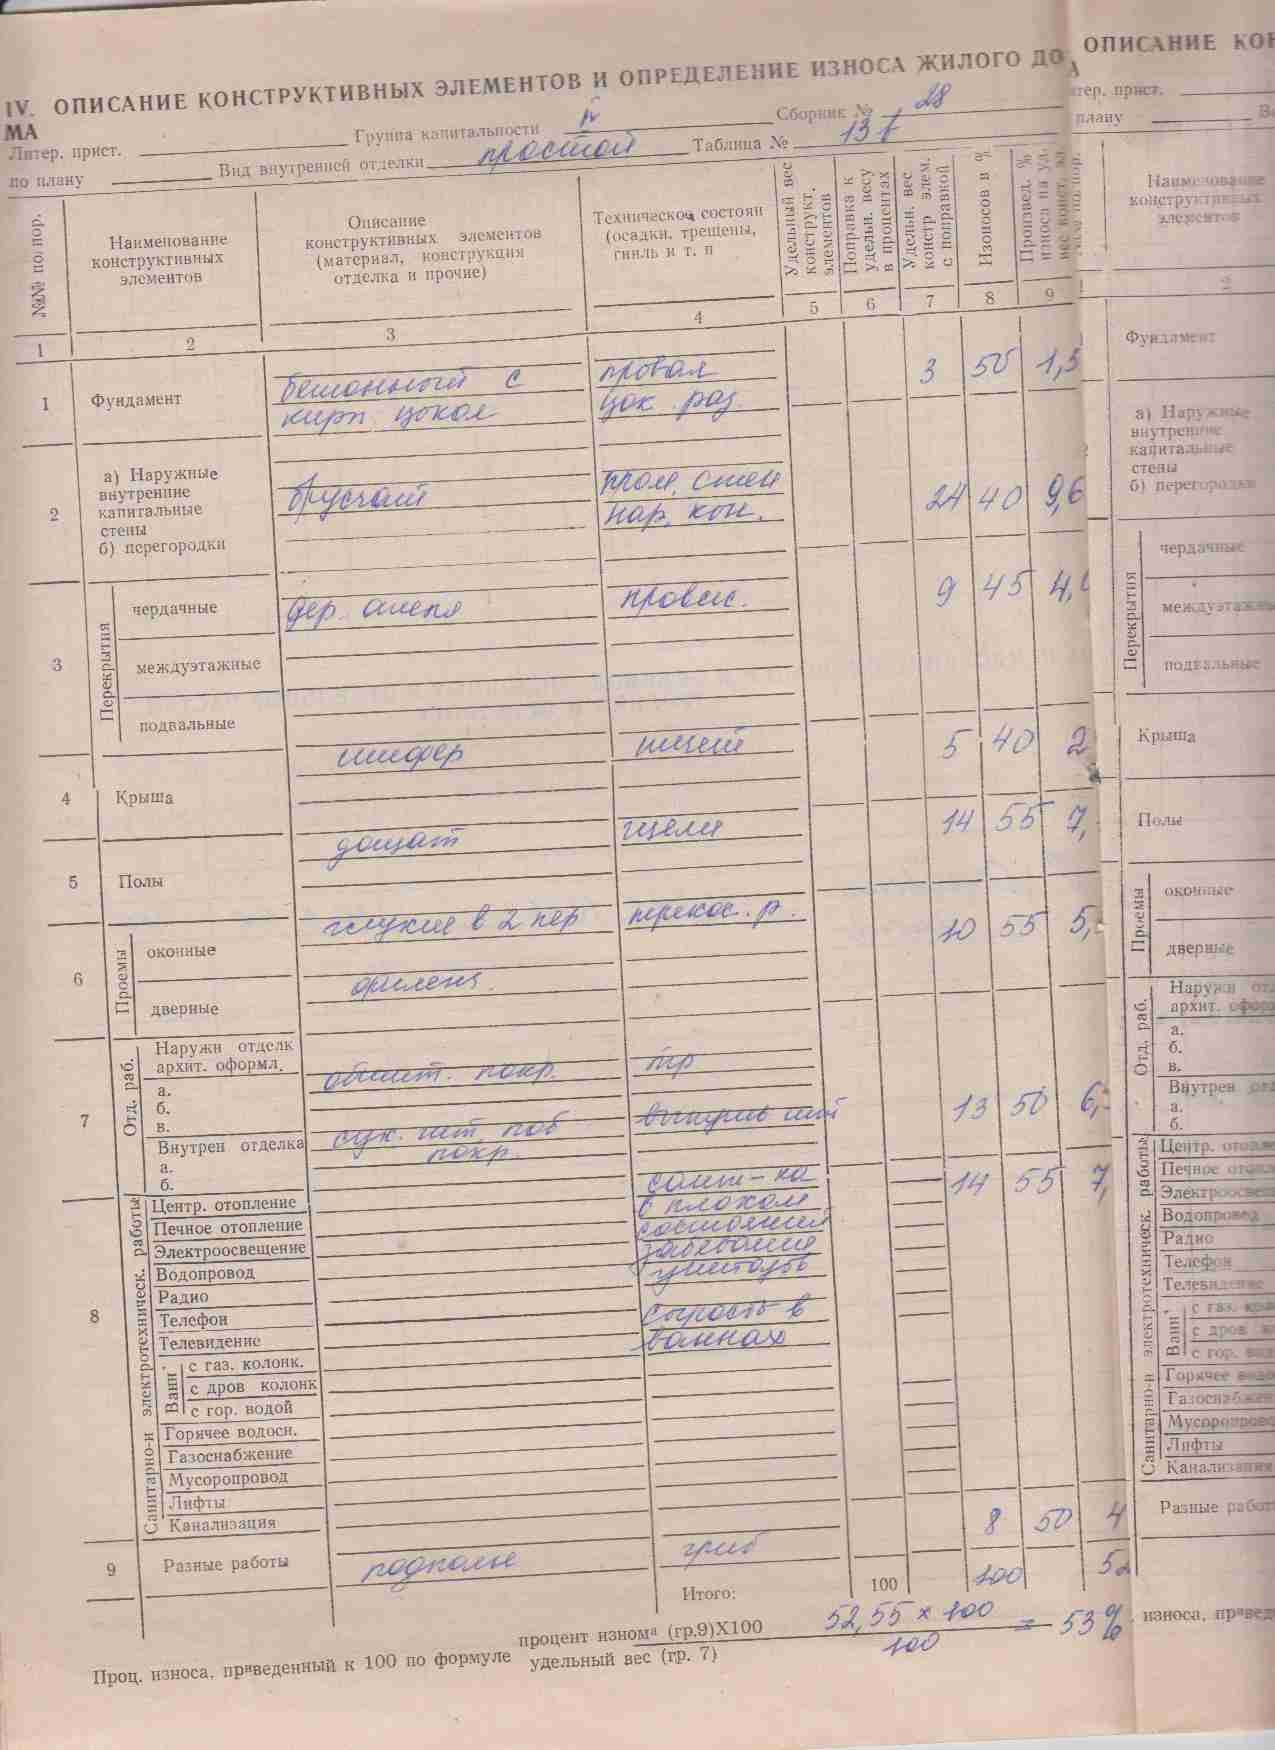 IV. ОПИСАНИЕ КОНСТРУКТИВНЫХ ЭЛЕМЕНТОВ И ОПРЕДЕЛЕНИЕ ИЗНОСА ЖИЛОГО ДО
МА
Литер. прист. Группа капитальности Сборник № 28
по плану Вид внутренней отделки простой Таблица №
№№ по пор.
Наименование
конструктивных
элементов
Описание
конструктивных элементов
(материал, конструкция
отделка и прочие)
Техническое состоян
(осадки, трещены,
гниль и т. п
Удельный вес
конструкт.
элементов
Поправка к
удельн. весу
в процентах
Удельн. вес
констр элем.
с поправкой
Изоносов в %
Произвед. %
износа на уд.
1 2 3 4 5 6 7 8 9
1 Фундамент бетонный с провал 3 50 1,5
кирп. цокол цок. раз.
2 а) Наружные
внутренние
капитальные
стены
б) перегородки
брусчат пром. стен 24 40 9,6
нар. кон.
3 Перекрытия
чердачные дер. отепл провис. 9 45 4,
междуэтажные
подвальные
4 Крыша шифер 5 40 2
5 Полы дощат щели 14 55 7,
6 Проемы
оконные глухие в 2 пер перекос. р. 10 55 5,
дверные филенч.
7 Отд. раб.
Наружн отделк
архит. оформл. обшит. покр. тр
а.
б.
в.
13 50 6,
Внутрен отделка сух. шт поб
покр.
а.
б.
8 Санитарно-и электротехническ. работы
сант-ка 14 55 7,
Центр. отопление в плохом
Печное отопление состоянии
Электроосвещение
Водопровод
Радио
Телефон сырость в
Телевидение ваннах
Ванн
с газ. колонк.
с дров колонк
с гор. водой
Горячее водосн.
Газоснабжение
Мусоропровод
Лифты
Канализация
9 Разные работы подполье гриб 8 50 4
Итого: 100 100 52
Проц. износа, приведенный к 100 по формуле процент износа (гр.9)X100
удельный вес (гр. 7)
52,55 × 100
100
= 53%
ОПИСАНИЕ КОН
тер. прист.
плану
Наименование
конструктивных
элементов
2
Фундамент
а) Наружные
внутренние
капитальные
стены
б) перегородки
Перекрытия
чердачные
междуэтажны
подвальные
Крыша
Полы
Проемы
оконные
дверные
Отд. раб.
Наружн отд
архит. оформ
а.
б.
в.
Внутрен от
а.
б.
Санитарно-и электротехническ. работы
Центр. отопле
Печное отопл
Электроосвещ
Водопровод
Радио
Телефон
Телевидение
Ванн
с газ. коло
с дров к
с гор. вод
Горячее водо
Газоснабжен
Мусоропрово
Лифты
Канализация
Разные работ
износа, приве